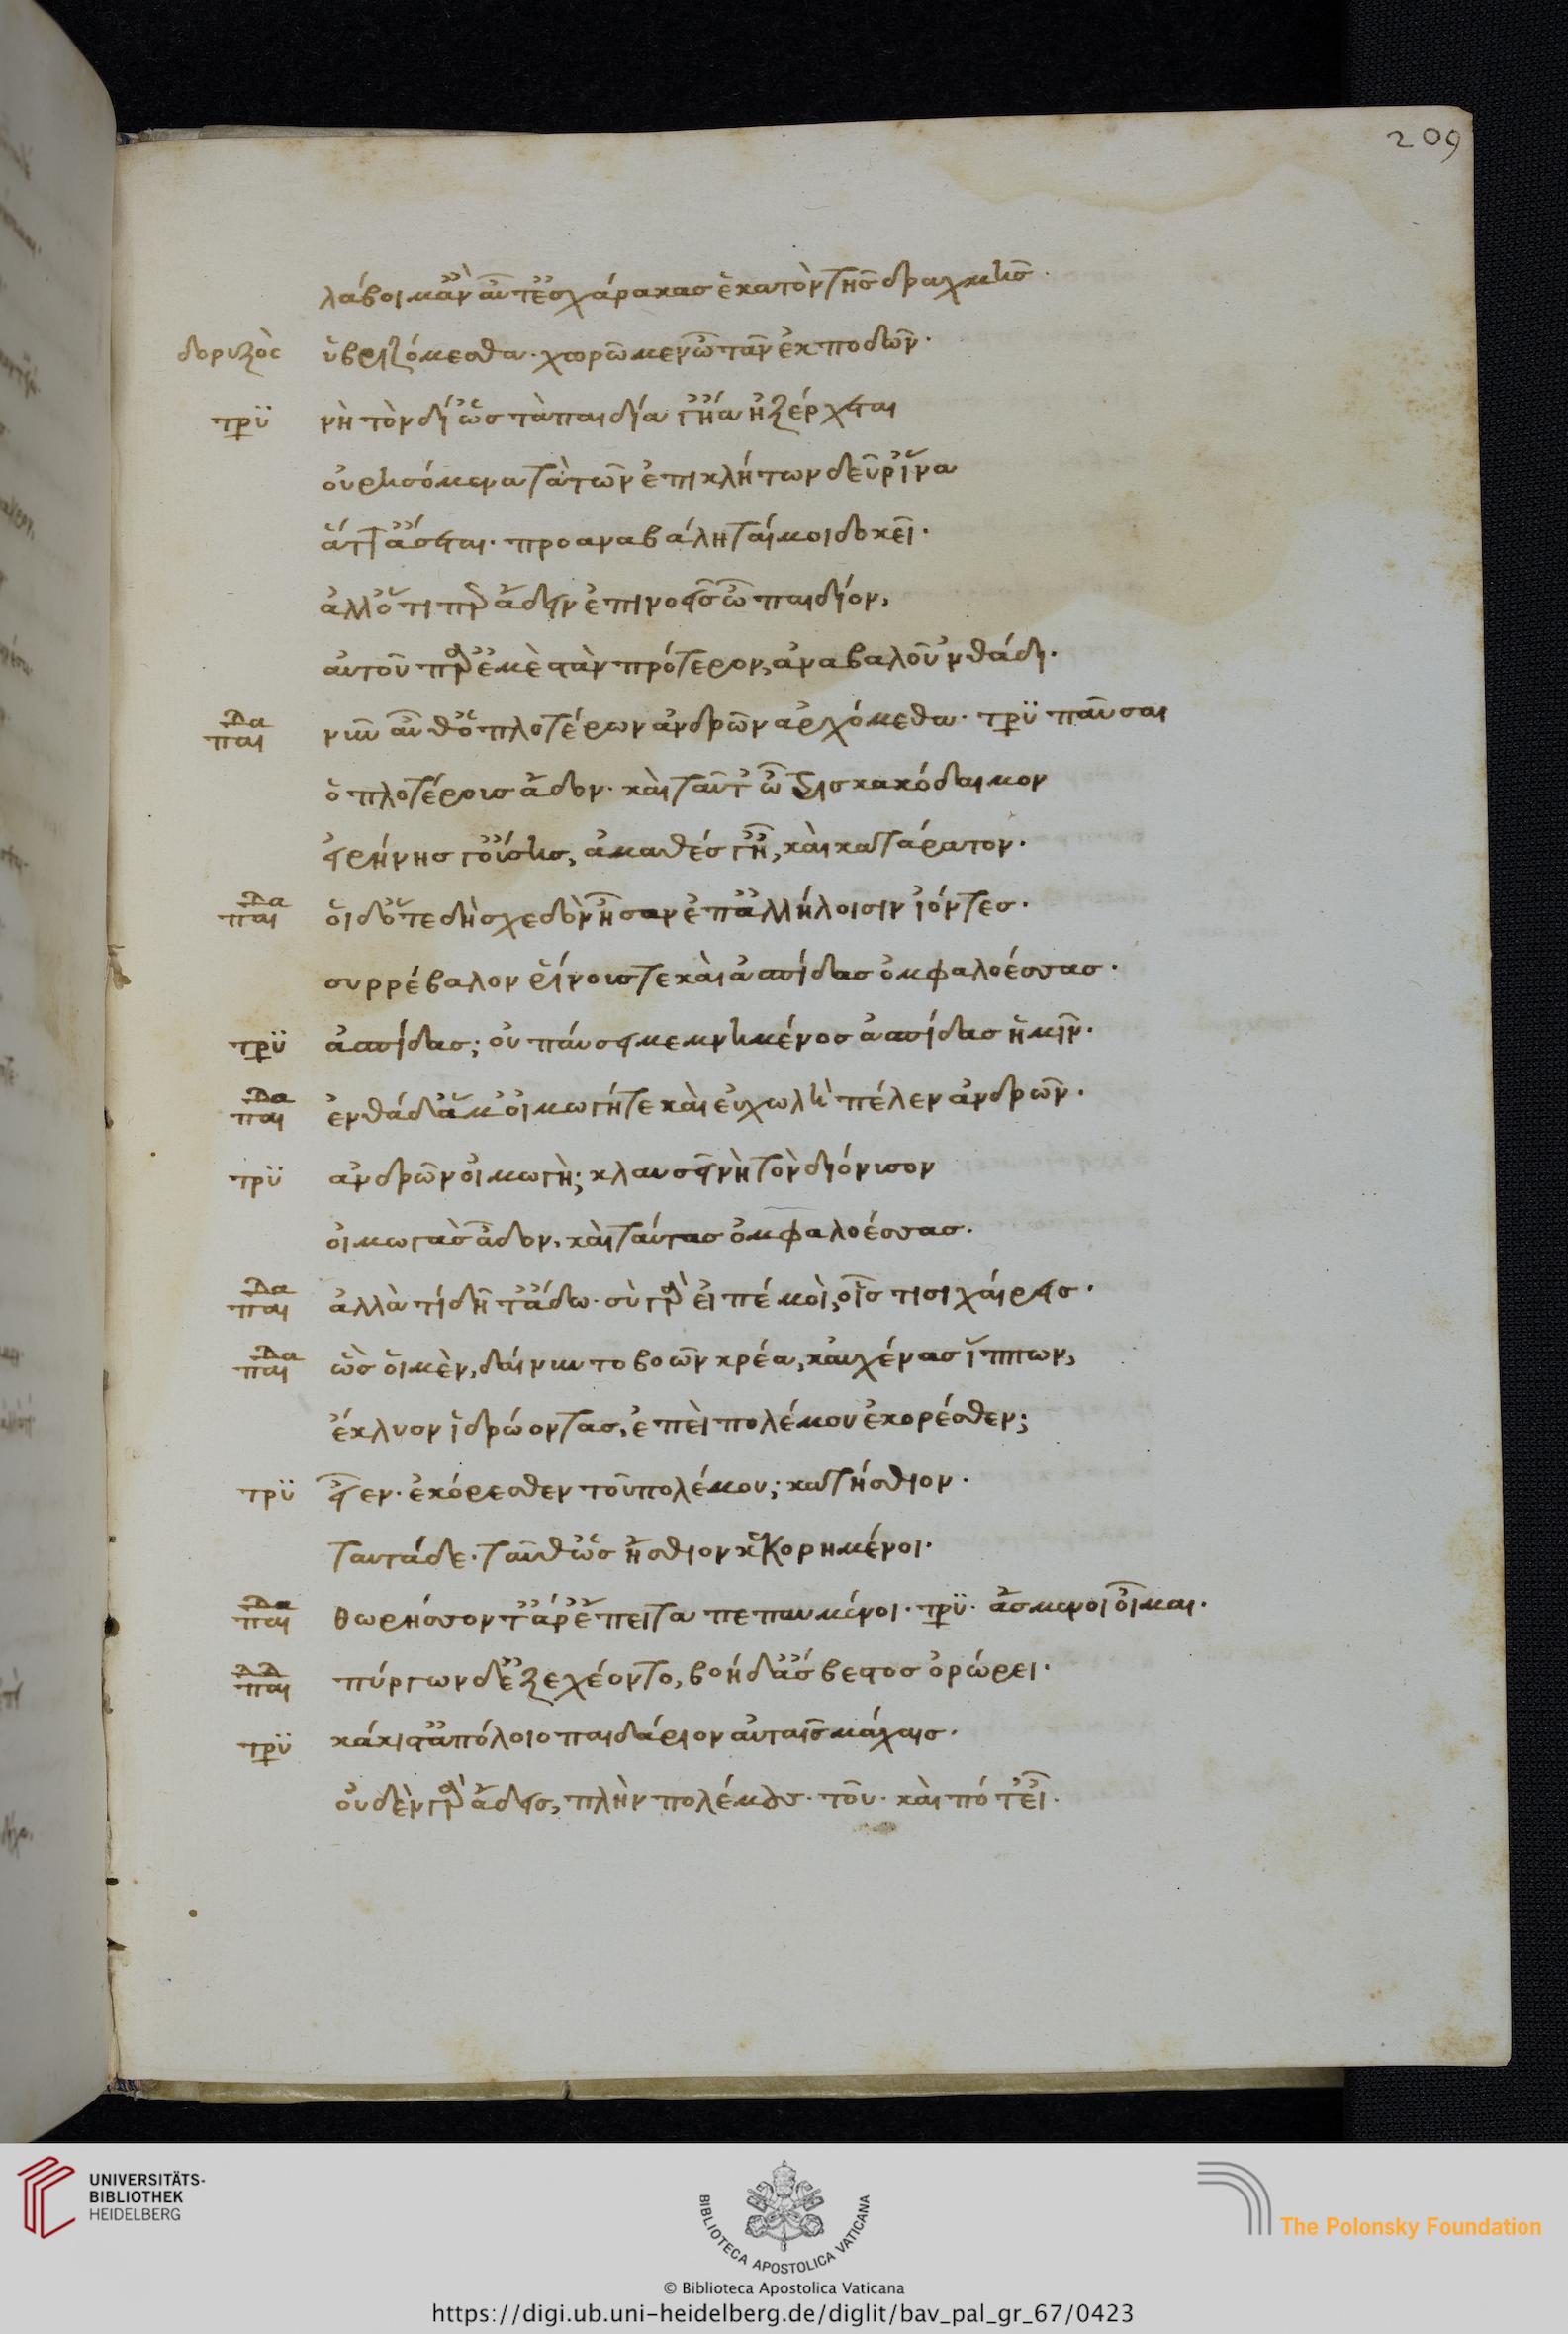 209
λάβοιμ' ἂν αὔτ' ἐς χάρακας ἑκατὸν τῆς δραχμῆς.
δορυξὸς ὑβριζόμεσθα. χωρῶμεν ὦ τᾶν ἐκποδῶν.
τρυ νὴ τὸν δί' ὡς τὰ παιδία γ' ἤδη 'ξέρχεται
οὐρησόμενα τὰ τῶν ἐπικλήτων δεῦρ' ἵνα
ἅττ' ἄσεται. προαναβάληταί μοι δοκεῖ.
ἀλλ' ὅ τι περ ἄδειν ἐπινοεῖς ὦ παιδίον,
αὐτοῦ παρ' ἐμὲ στὰν πρότερον, ἀναβαλοῦ 'νθάδι.
παι νῦν αὖθ' ὁπλοτέρων ἀνδρῶν ἀρχόμεθα. τρυ παῦσαι
ὁπλοτέροις ἄδον. καὶ ταῦτ' ὦ τρισκακόδαιμον
εἰρήνης γ' οὔσης, ἀμαθές γ' εἶ, καὶ κατάρατον.
παι οἱ δ' ὅτε δὴ σχεδὸν ἦσαν ἐπ' ἀλλήλοισιν ἰόντες.
συρρέβαλον ῥίνοις τε καὶ ἀσπίδας ὀμφαλοέσσας.
τρυ ἀσπίδας; οὐ παύσει μεμνημένος ἀσπίδας ἡμῖν.
παι ἐνθάδ' ἅμ' οἰμωγή τε καὶ εὐχωλὴ πέλεν ἀνδρῶν.
τρυ ἀνδρῶν οἰμωγὴ; κλαυσεῖ νὴ τὸν διόνισον
οἰμωγὰς ἄδον, καὶ ταύτας ὀμφαλοέσσας.
παι ἀλλὰ τί δῆτ' ἄδω. σὺ γὰρ εἰπέ μοὶ, οἷς τισι χαίρεις.
παι ὣς οἱ μὲν, δαίνυντο βοῶν κρέα, καὐχένας ἵππων,
ἔκλυον ἱδρώοντας, ἐπεὶ πολέμου ἐκορέσθεν;
τρυ εἶεν. ἐκόρεσθεν τοῦ πολέμου; κατήσθιον.
ταυτάδε. ταῦθ' ὡς ἤσθιον κεκορημένοι.
παι θωρήσσοντ' ἄρ' ἔπειτα πεπαυμένοι. τρυ. ἄσμενοι οἶμαι.
παι πύργων δ' ἐξεχέοντο, βοή δ' ἄσβεστος ὀρώρει.
τρυ κάκιστ' ἀπόλοιο παιδάριον αὐταῖς μάχαις.
οὐδὲν γὰρ ἄδεις, πλὴν πολέμους. τοῦ. καὶ πότ' εἶ.
UNIVERSITÄTS-
BIBLIOTHEK
HEIDELBERG
BIBLIOTECA APOSTOLICA VATICANA
The Polonsky Foundation
© Biblioteca Apostolica Vaticana
https://digi.ub.uni-heidelberg.de/diglit/bav_pal_gr_67/0423